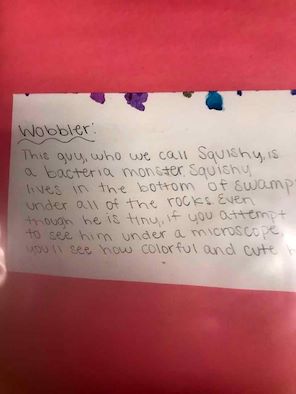 Wobbler:
This guy, who we call Squishy, is
a bacteria monster. Squishy
lives in the bottom of swamp
under all of the rocks. Even
though he is tiny, if you attempt
to see him under a microscope
you'll see how colorful and cute h